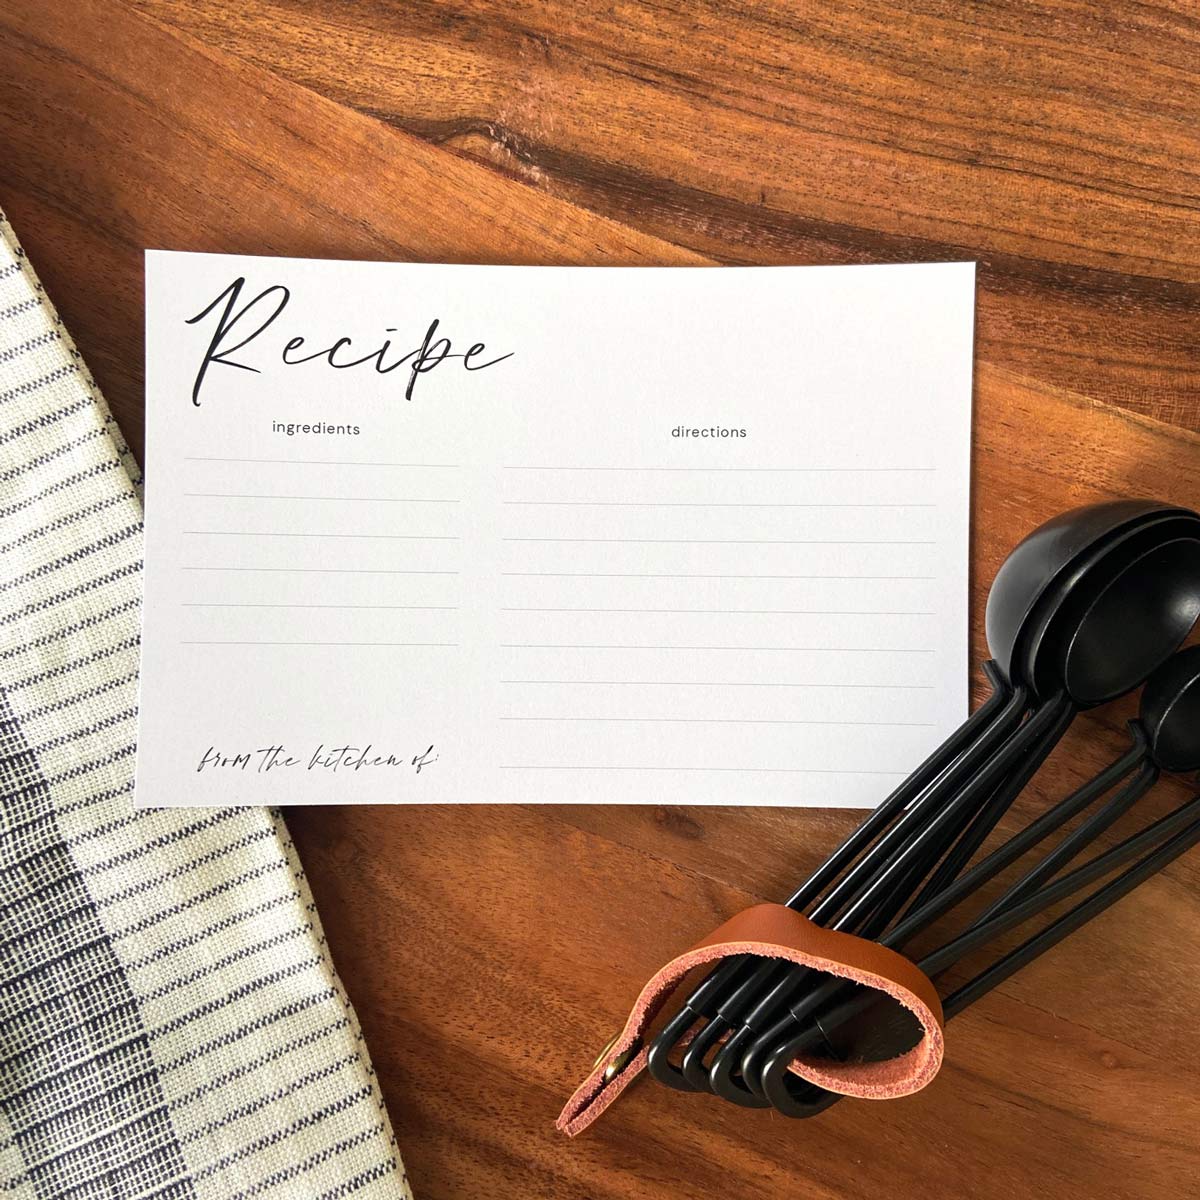 Recipe
ingredients
directions
from the kitchen of: